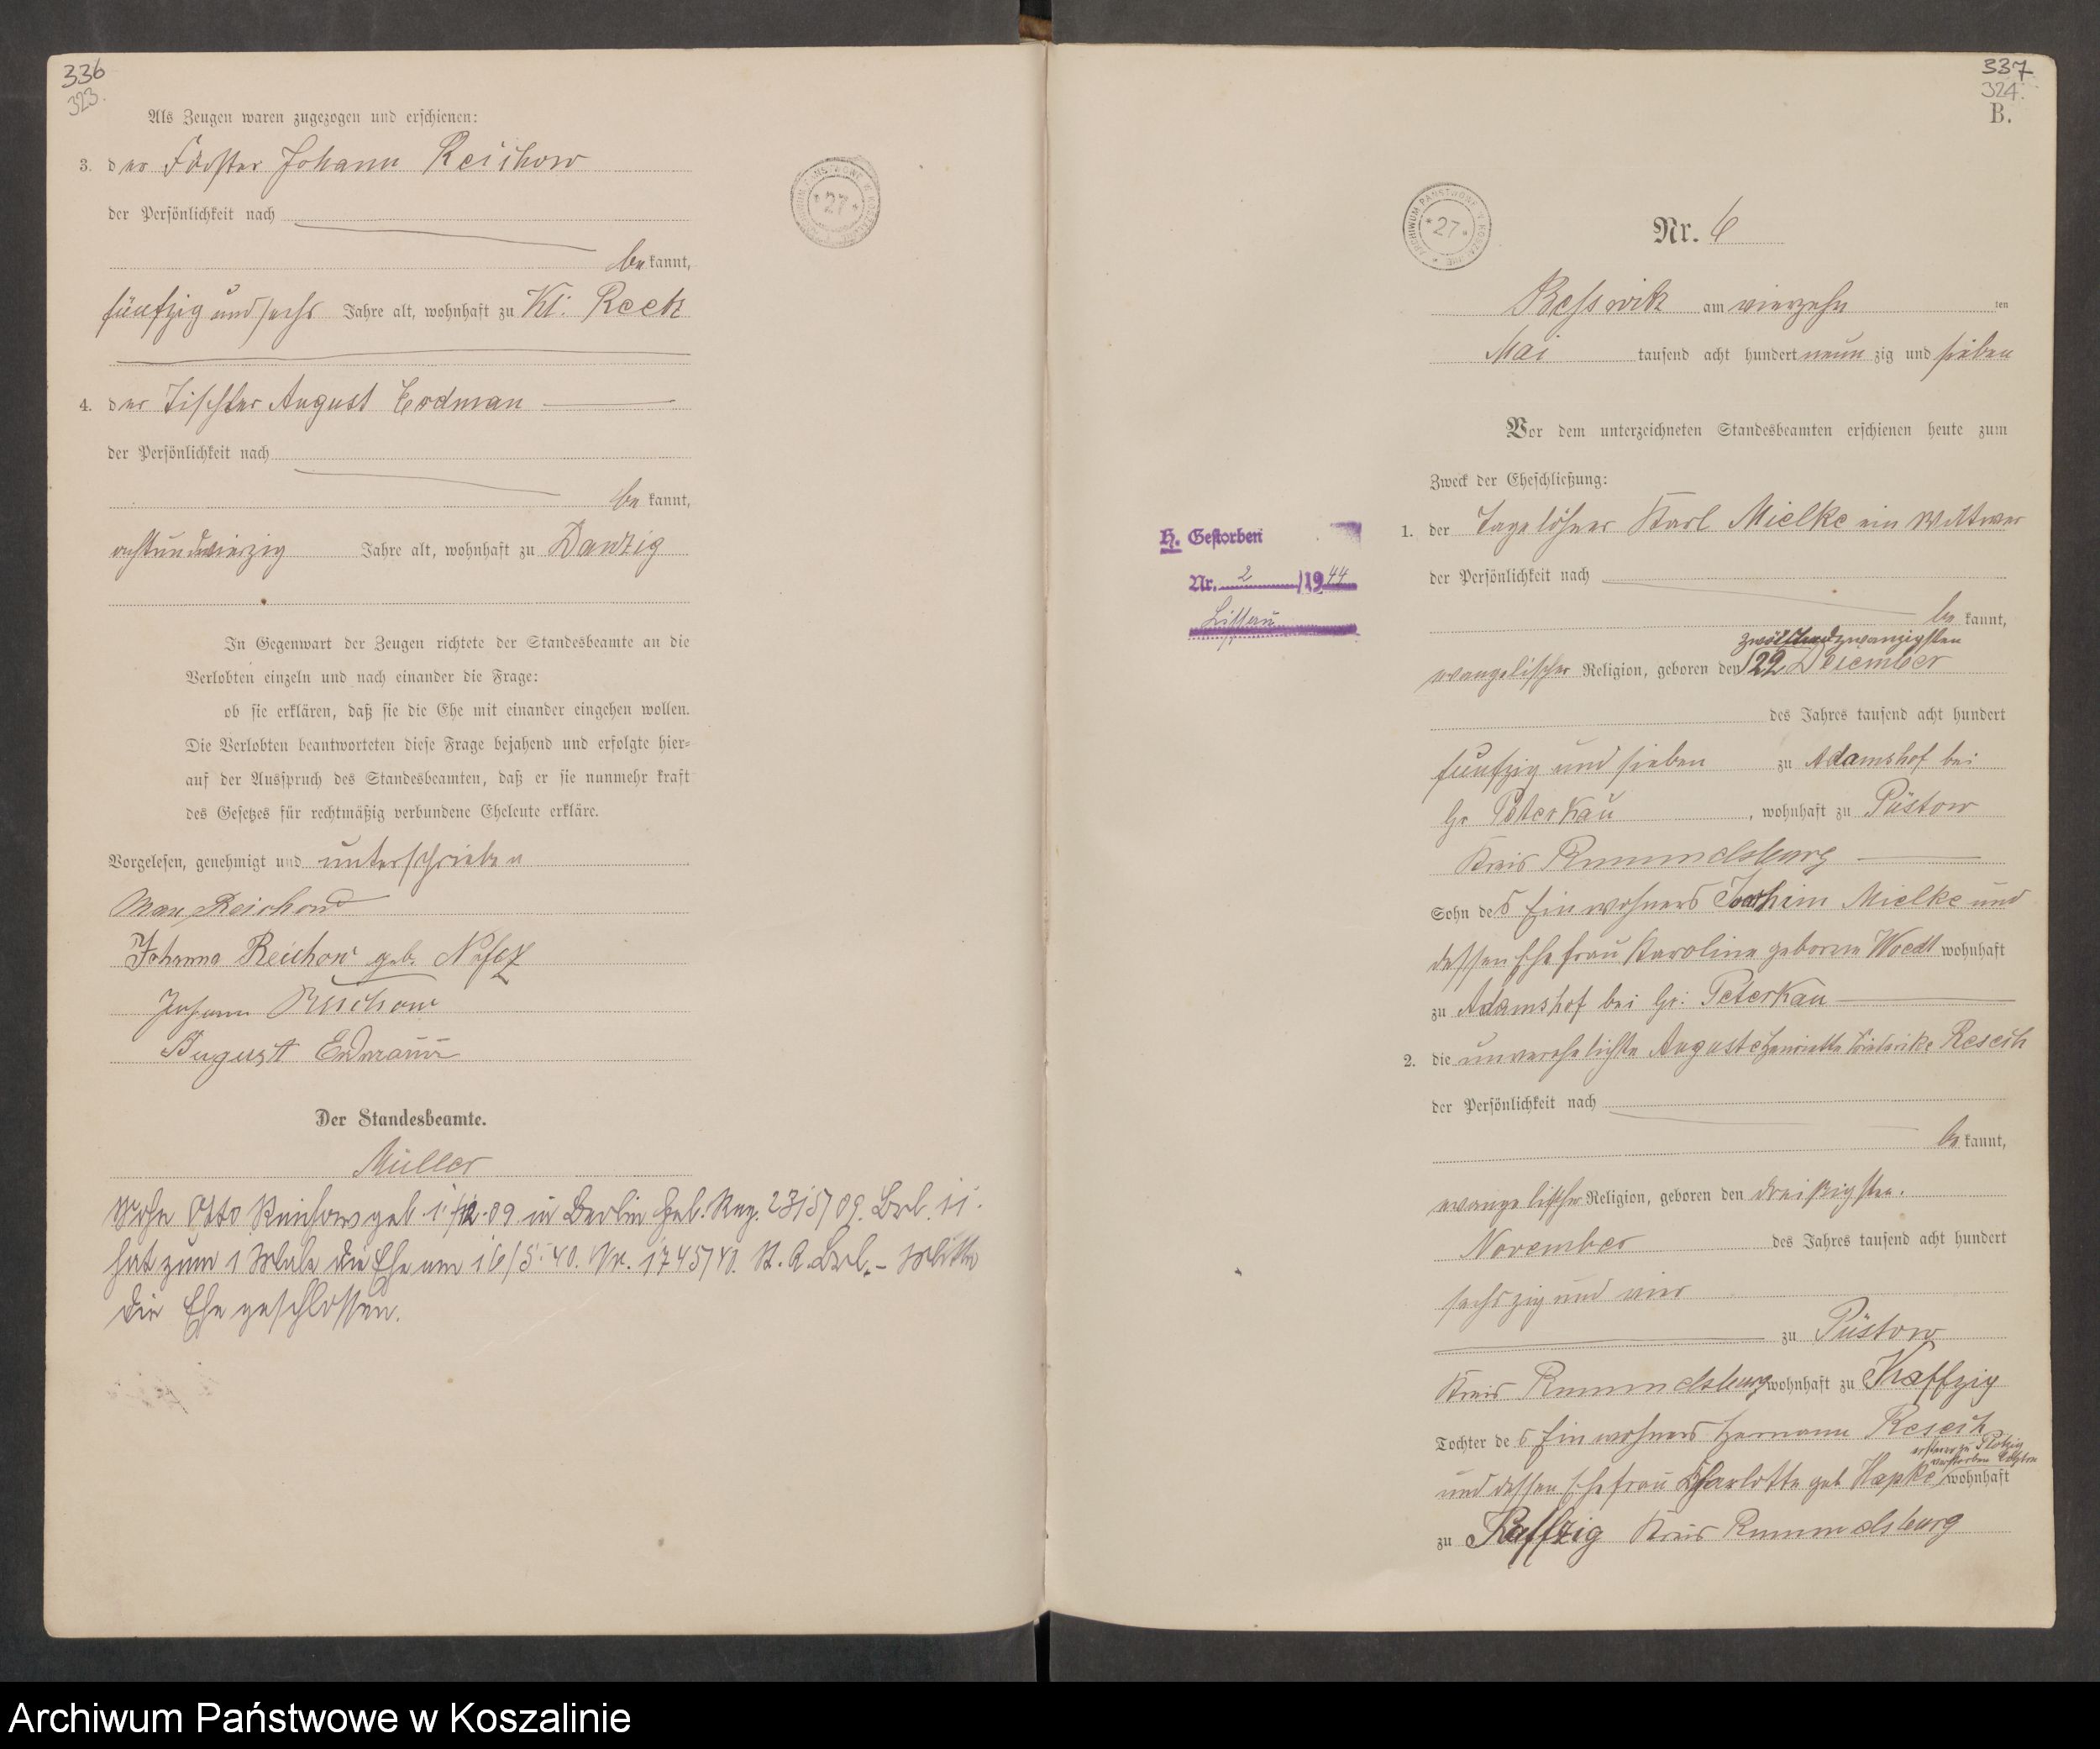 336
323.
Als Zeugen waren zugezogen und erschienen:
3. der Förster Johann Reichow
der Persönlichkeit nach
be kannt,
fünfzig und sechs Jahre alt, wohnhaft zu Kl. Reetz
4. der Tischler August Erdman
der Persönlichkeit nach
be kannt,
achtundvierzig Jahre alt, wohnhaft zu Danzig
In Gegenwart der Zeugen richtete der Standesbeamte an die
Verlobten einzeln und nach einander die Frage:
ob sie erklären, daß sie die Ehe mit einander eingehen wollen.
Die Verlobten beantworteten diese Frage bejahend und erfolgte hier-
auf der Ausspruch des Standesbeamten, daß er sie nunmehr kraft
des Gesetzes für rechtmäßig verbundene Eheleute erkläre.
Vorgelesen, genehmigt und unterschrieben
Max Reichow
Johanna Reichow geb.
Johann Reichow
August Erdmann
Der Standesbeamte.
Müller
Sohn Otto Reichow geb. 1./12.09 in Berlin Geb. Reg. 2315/09. Brl. 11.
hat zum 1 Male die Ehe am 16/5.40. Nr. 1745/40. St. A. Brl. - Mitte
die Ehe geschlossen.
ARCHIWUM PAŃSTWOWE W KOSZALINIE
* 27 *
337
324.
B.
ARCHIWUM PAŃSTWOWE W KOSZALINIE
* 27 *
Nr. 6
Besswitz am vierzehn ten
Mai tausend acht hundert neun zig und sieben
Vor dem unterzeichneten Standesbeamten erschienen heute zum
Zweck der Eheschließung:
H. Gestorben
Nr. 2 /1944
1. der Tagelöhner Karl Mielke ein Wittwer
der Persönlichkeit nach
be kannt,
evangelischer Religion, geboren den 22 Dezember
des Jahres tausend acht hundert
fünfzig und sieben zu Adamshof bei
Gr Peterkau, wohnhaft zu Püstow
Kreis Rummelsburg
Sohn des Einwohners Joachim Mielke und
dessen Ehefrau Karoline geborne Woedt wohnhaft
zu Adamshof bei Gr. Peterkau
2. die unverehelichte Auguste Henriette Friederike Resech
der Persönlichkeit nach
be kannt,
evangelischer Religion, geboren den dreißigsten.
November des Jahres tausend acht hundert
sechszig und vier
zu Püstow
Kreis Rummelsburg wohnhaft zu Kaffzig
Tochter des Einwohners Hermann Resech
ersterer zu
verstorben Letztere
und dessen Ehefrau Charlotte geb Hapke, wohnhaft
zu Kaffzig Kreis Rummelsburg
Archiwum Państwowe w Koszalinie